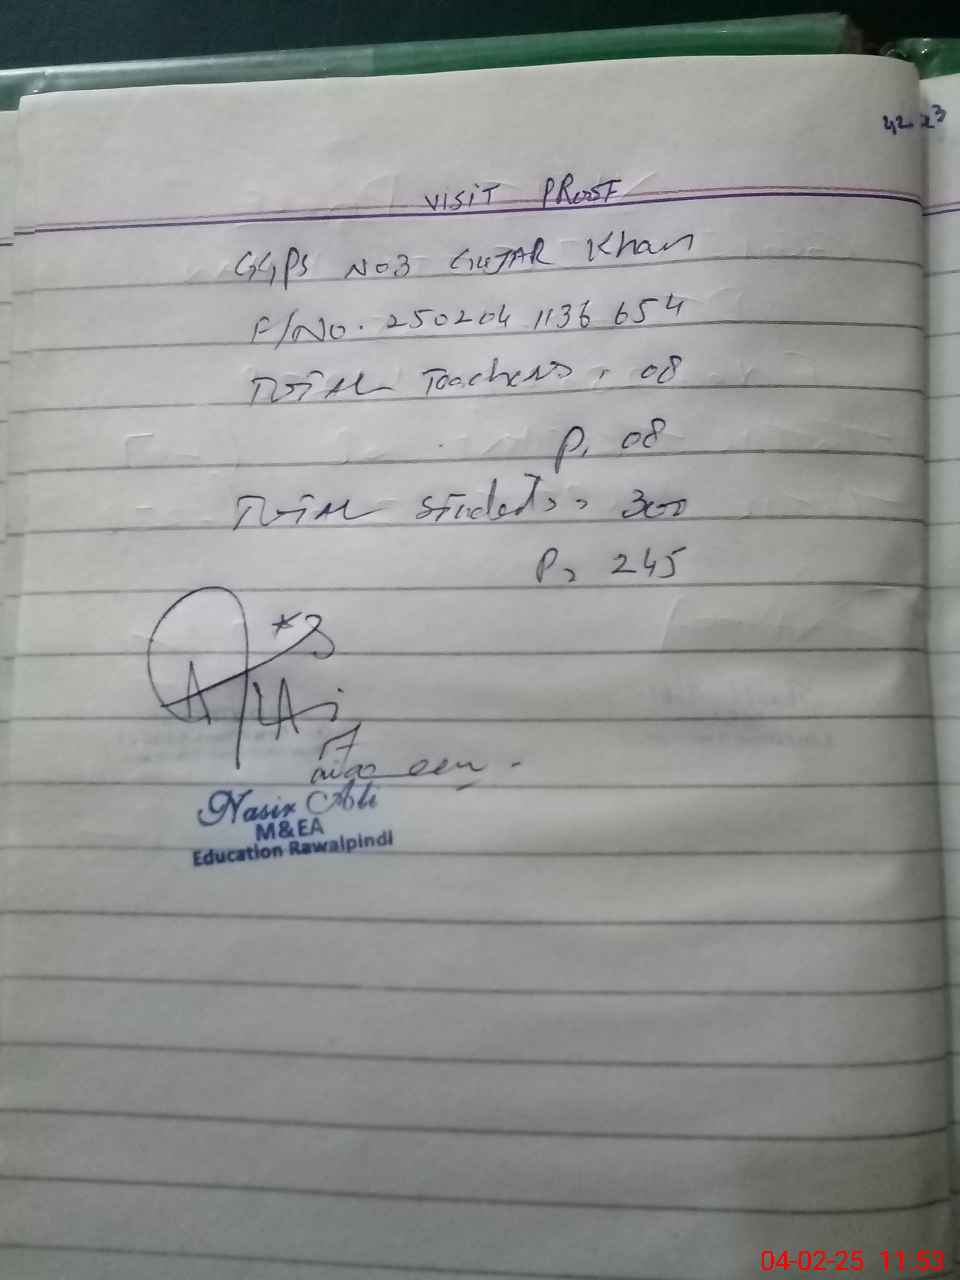 VISIT PROOF
GGPS No3 GUJAR Khan
F/No. 250204 1136 654
TOTAL Teachers, 08
P, 08
TOTAL Students, 300
P, 245
Nasir Ali
M&EA
Education Rawalpindi
04-02-25 11:53